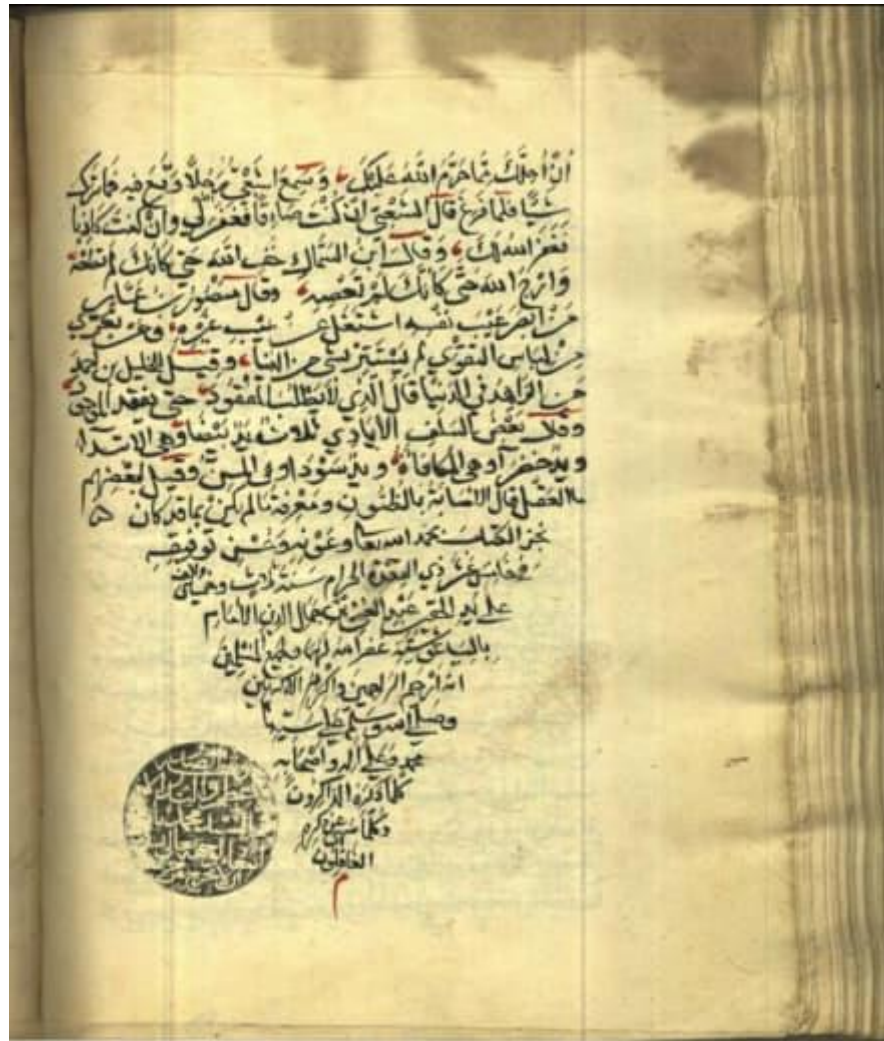 أن أحلك مما حرم الله عليك وسمع الشعبي رجلا وقع فيه فما ترك
شيا فلما فرغ قال الشعبي ان كنت صادقا فغفر لي وان كنت كاذبا
فغفر الله لك وقال ابن السماك خف الله حتى كأنك لم تطعه
وارج الله حتى كأنك لم تعصه وقال منصور بن عمار
من أبصر عيب نفسه اشتغل عن عيب غيره ومن تعرى
من لباس التقوى لم يستتر بشي من الدنيا وقيل للخليل بن احمد
من الزاهد في الدنيا قال الذي لا يطلب المفقود حتى يفقد الموجود
وقال بعض السلف الأيادي ثلاثة يد بيضا وهي الابتدآ
ويد خضرآ وهي المكافاة ويد سودا وهي المن وقيل لبعضهم
ما العقل قال الاصابة بالظنون ومعرفة ما لم يكن بما قد كان
نجز الكتاب بحمد الله تعا وعونه وحسن توفيقه
في خامس عشر ذي القعدة الحرام سنة ثلاث
على يد عبد بن جمال الدين الامام
غفر الله لهما ولجميع المسلمين
انه ارحم الراحمين واكرم الاكرمين
وصلى الله وسلم على سيدنا
محمد وعلى اله واصحابه
كلما ذكره الذاكرون
وكلما سهى عن ذكره
الغافلون
م